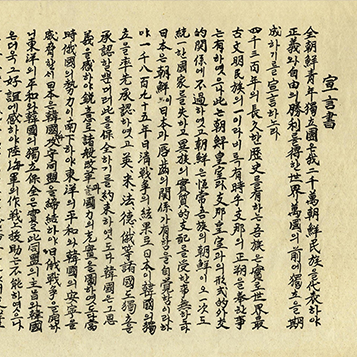 宣言書
全朝鮮青年獨立團은我二千萬朝鮮民族을代表하야
正義와自由의勝利를得한世界萬國의前에獨立을期
成하기를宣言하노라
四千三百年의長久한歷史를有하는吾族은實로世界最
古文明民族의一이라비록有時乎支那의正朔을奉한事
는有하엿으나此는朝鮮皇室과支那皇室과의形式的外交
的關係에不過하엿고朝鮮은恒常吾族의朝鮮이오一次도
統一한國家를失하고異族의實質的支配를受한事無하도다
日本은朝鮮이日本과脣齒의關係가有함을自覺함이라하
야一千八百九十五年日淸戰爭의結果로日本이韓國의獨
立을率先承認하엿고英、米、法、德、俄等諸國도獨立을
承認할뿐더러此를保全하기를約束하엿도다韓國은그恩
義를感하야銳意로諸般改革과國力의充實을圖하엿도다當
時俄國의勢力이南下하야東洋의平和와韓國의安寧을
威脅할새日本은韓國과攻守同盟을締結하야日俄戰爭을開하
니東洋의平和와韓國의獨立保全은實로此同盟의主旨와韓國
은더욱그好誼에感하야陸海軍의作戰上援助는不能하엿으나